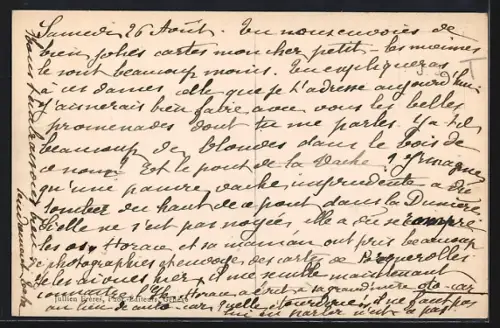 Samedi 26 Août. Tu nous envoies de
bien jolies cartes mon cher petit - les miennes
le sont beaucoup moins. Tu expliqueras
à ces dames celle que je t'adresse aujourd'hui
J'aimerais bien faire avec vous les belles
promenades dont tu me parles. Ya-t-il
beaucoup de blondes dans le bois de
ce nom? Est le pont de la Vache? J'imagine
qu'une pauvre vache imprudente a dû
tomber du haut de ce pont dans la Dunière
Si elle ne s'est pas noyée, elle a dû se rompre
les os. Horace et sa maman ont pris beaucoup
de photographies et envoyé des cartes de
hier, il me semble maintenant
connaître Horace a écrit à sa grand'mère oto-car
au lieu de auto-car, quelle il ne faut pas
lui en parler n'est-ce pas
Jullien Frères, Phot. Editeurs, Genève